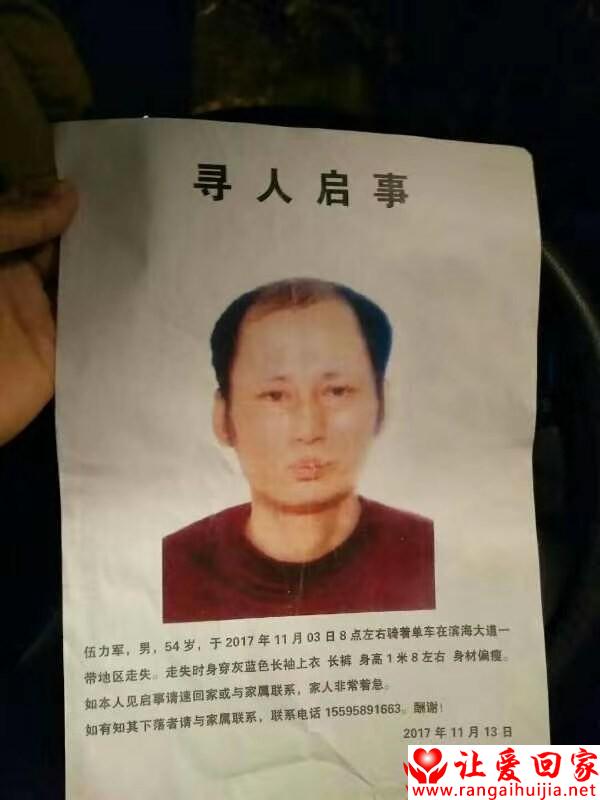 寻人启事
伍力军，男，54岁，于2017年11月03日8点左右骑着单车在滨海大道一
带地区走失。走失时身穿灰蓝色长袖上衣 长裤 身高1米8左右 身材偏瘦。
如本人见启事请速回家或与家属联系，家人非常着急。
如有知其下落者请与家属联系，联系电话15595891663。酬谢！
2017年11月13日
让爱回家
www.rangaihuijia.net